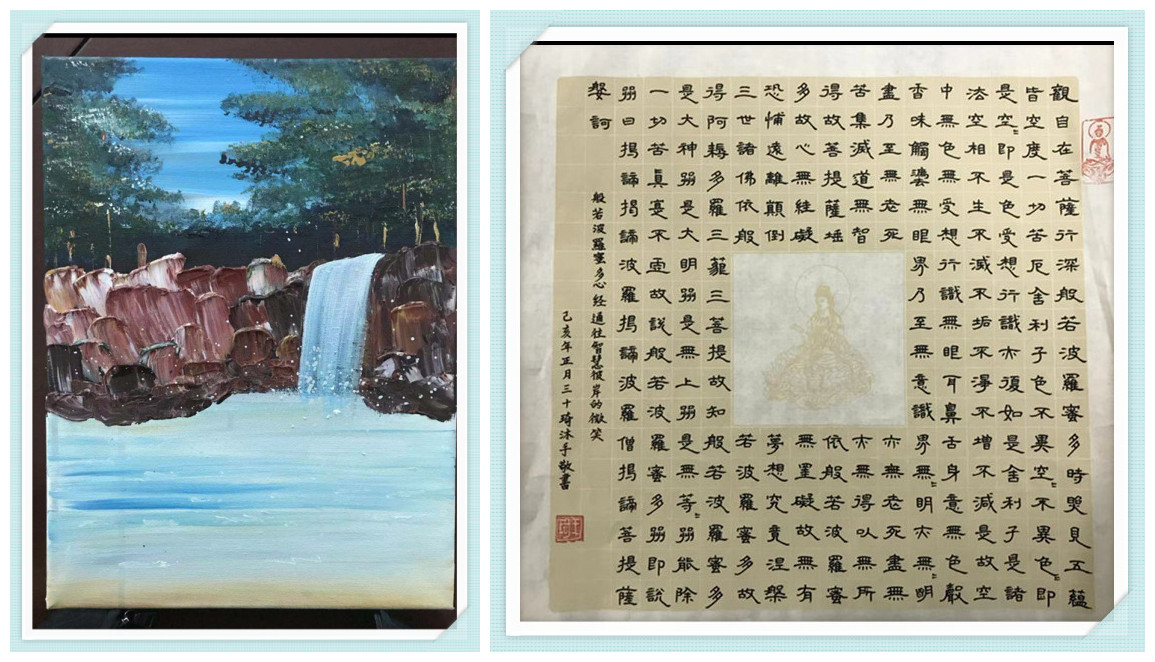 觀自在菩薩行深般若波羅蜜多時照見五蘊
皆空度一切苦厄舍利子色不異空〻不異色〻即
是空〻即是色受想行識亦復如是舍利子是諸
法空相不生不滅不垢不淨不增不減是故空
中無色無受想行識無眼耳鼻舌身意無色聲
香味觸法無眼界乃至無意識界無〻明亦無〻明
盡乃至無老死亦無老死盡無
苦集滅道無智亦無得以無所
得故菩提薩埵依般若波羅蜜
多故心無罣礙無罣礙故無有
恐怖遠離顛倒夢想究竟涅槃
三世諸佛依般若波羅蜜多故
得阿耨多羅三藐三菩提故知般若波羅蜜多
是大神咒是大明咒是無上咒是無等〻咒能除
一切苦真實不虛故說般若波羅蜜多咒即說
咒曰揭諦揭諦波羅揭諦波羅僧揭諦菩提薩
婆訶
般若波羅蜜多心经通往智慧彼岸的微笑
己亥年正月三十琦沐手敬書